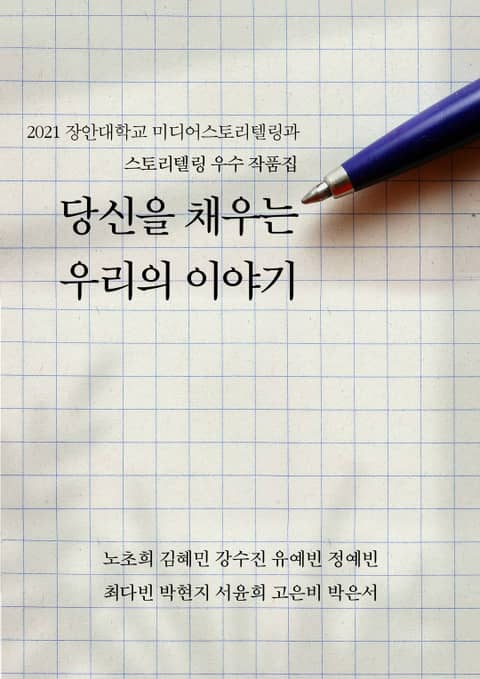 2021 장안대학교 미디어스토리텔링과
스토리텔링 우수 작품집
당신을 채우는
우리의 이야기
노초희 김혜민 강수진 유예빈 정예빈
최다빈 박현지 서윤희 고은비 박은서